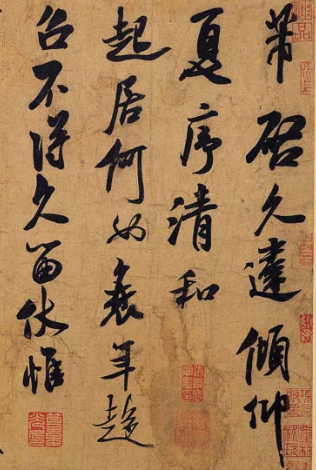 芾啟久違傾仰
夏序清和
起居何如衰年趨
召不得久留伏惟